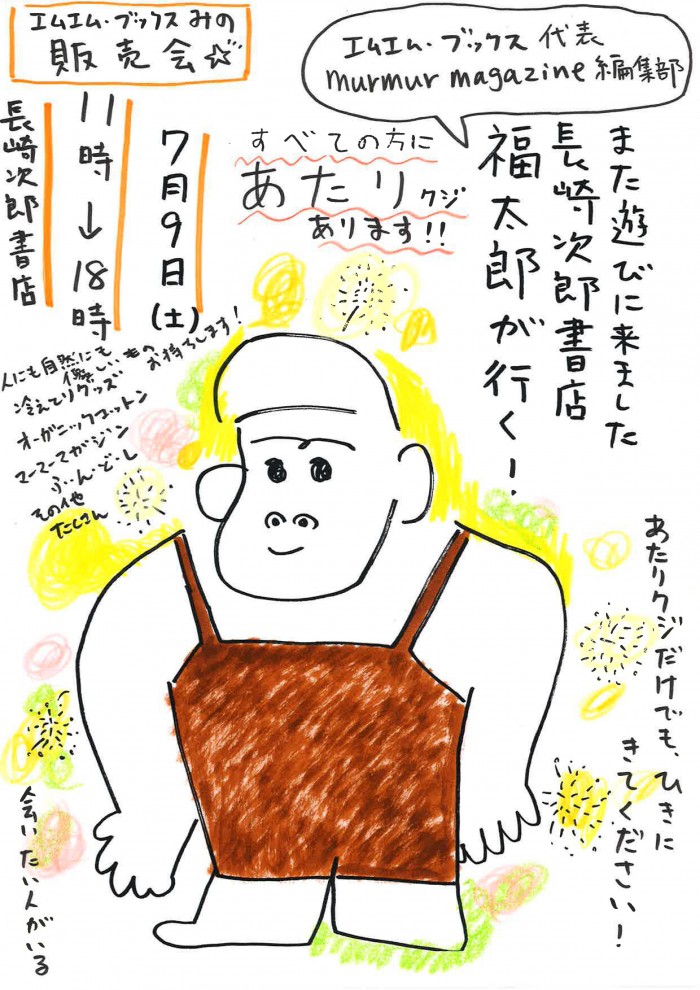 エムエム・ブックス みの
販売会☆
エムエム・ブックス 代表
murmur magazine 編集部
また遊びに来ました
長崎次郎書店
福太郎が行く!
すべての方に
あたりクジ
あります!!
7月9日(土)
11時→18時
長崎次郎書店
人にも自然にも
優しいもの お持ちします!
冷えとりグッズ
オーガニックコットン
マーマーマガジン
ふ・ん・ど・し
その他
たくさん
あたりクジだけでも、ひきに
きてください!
会いたい人がいる